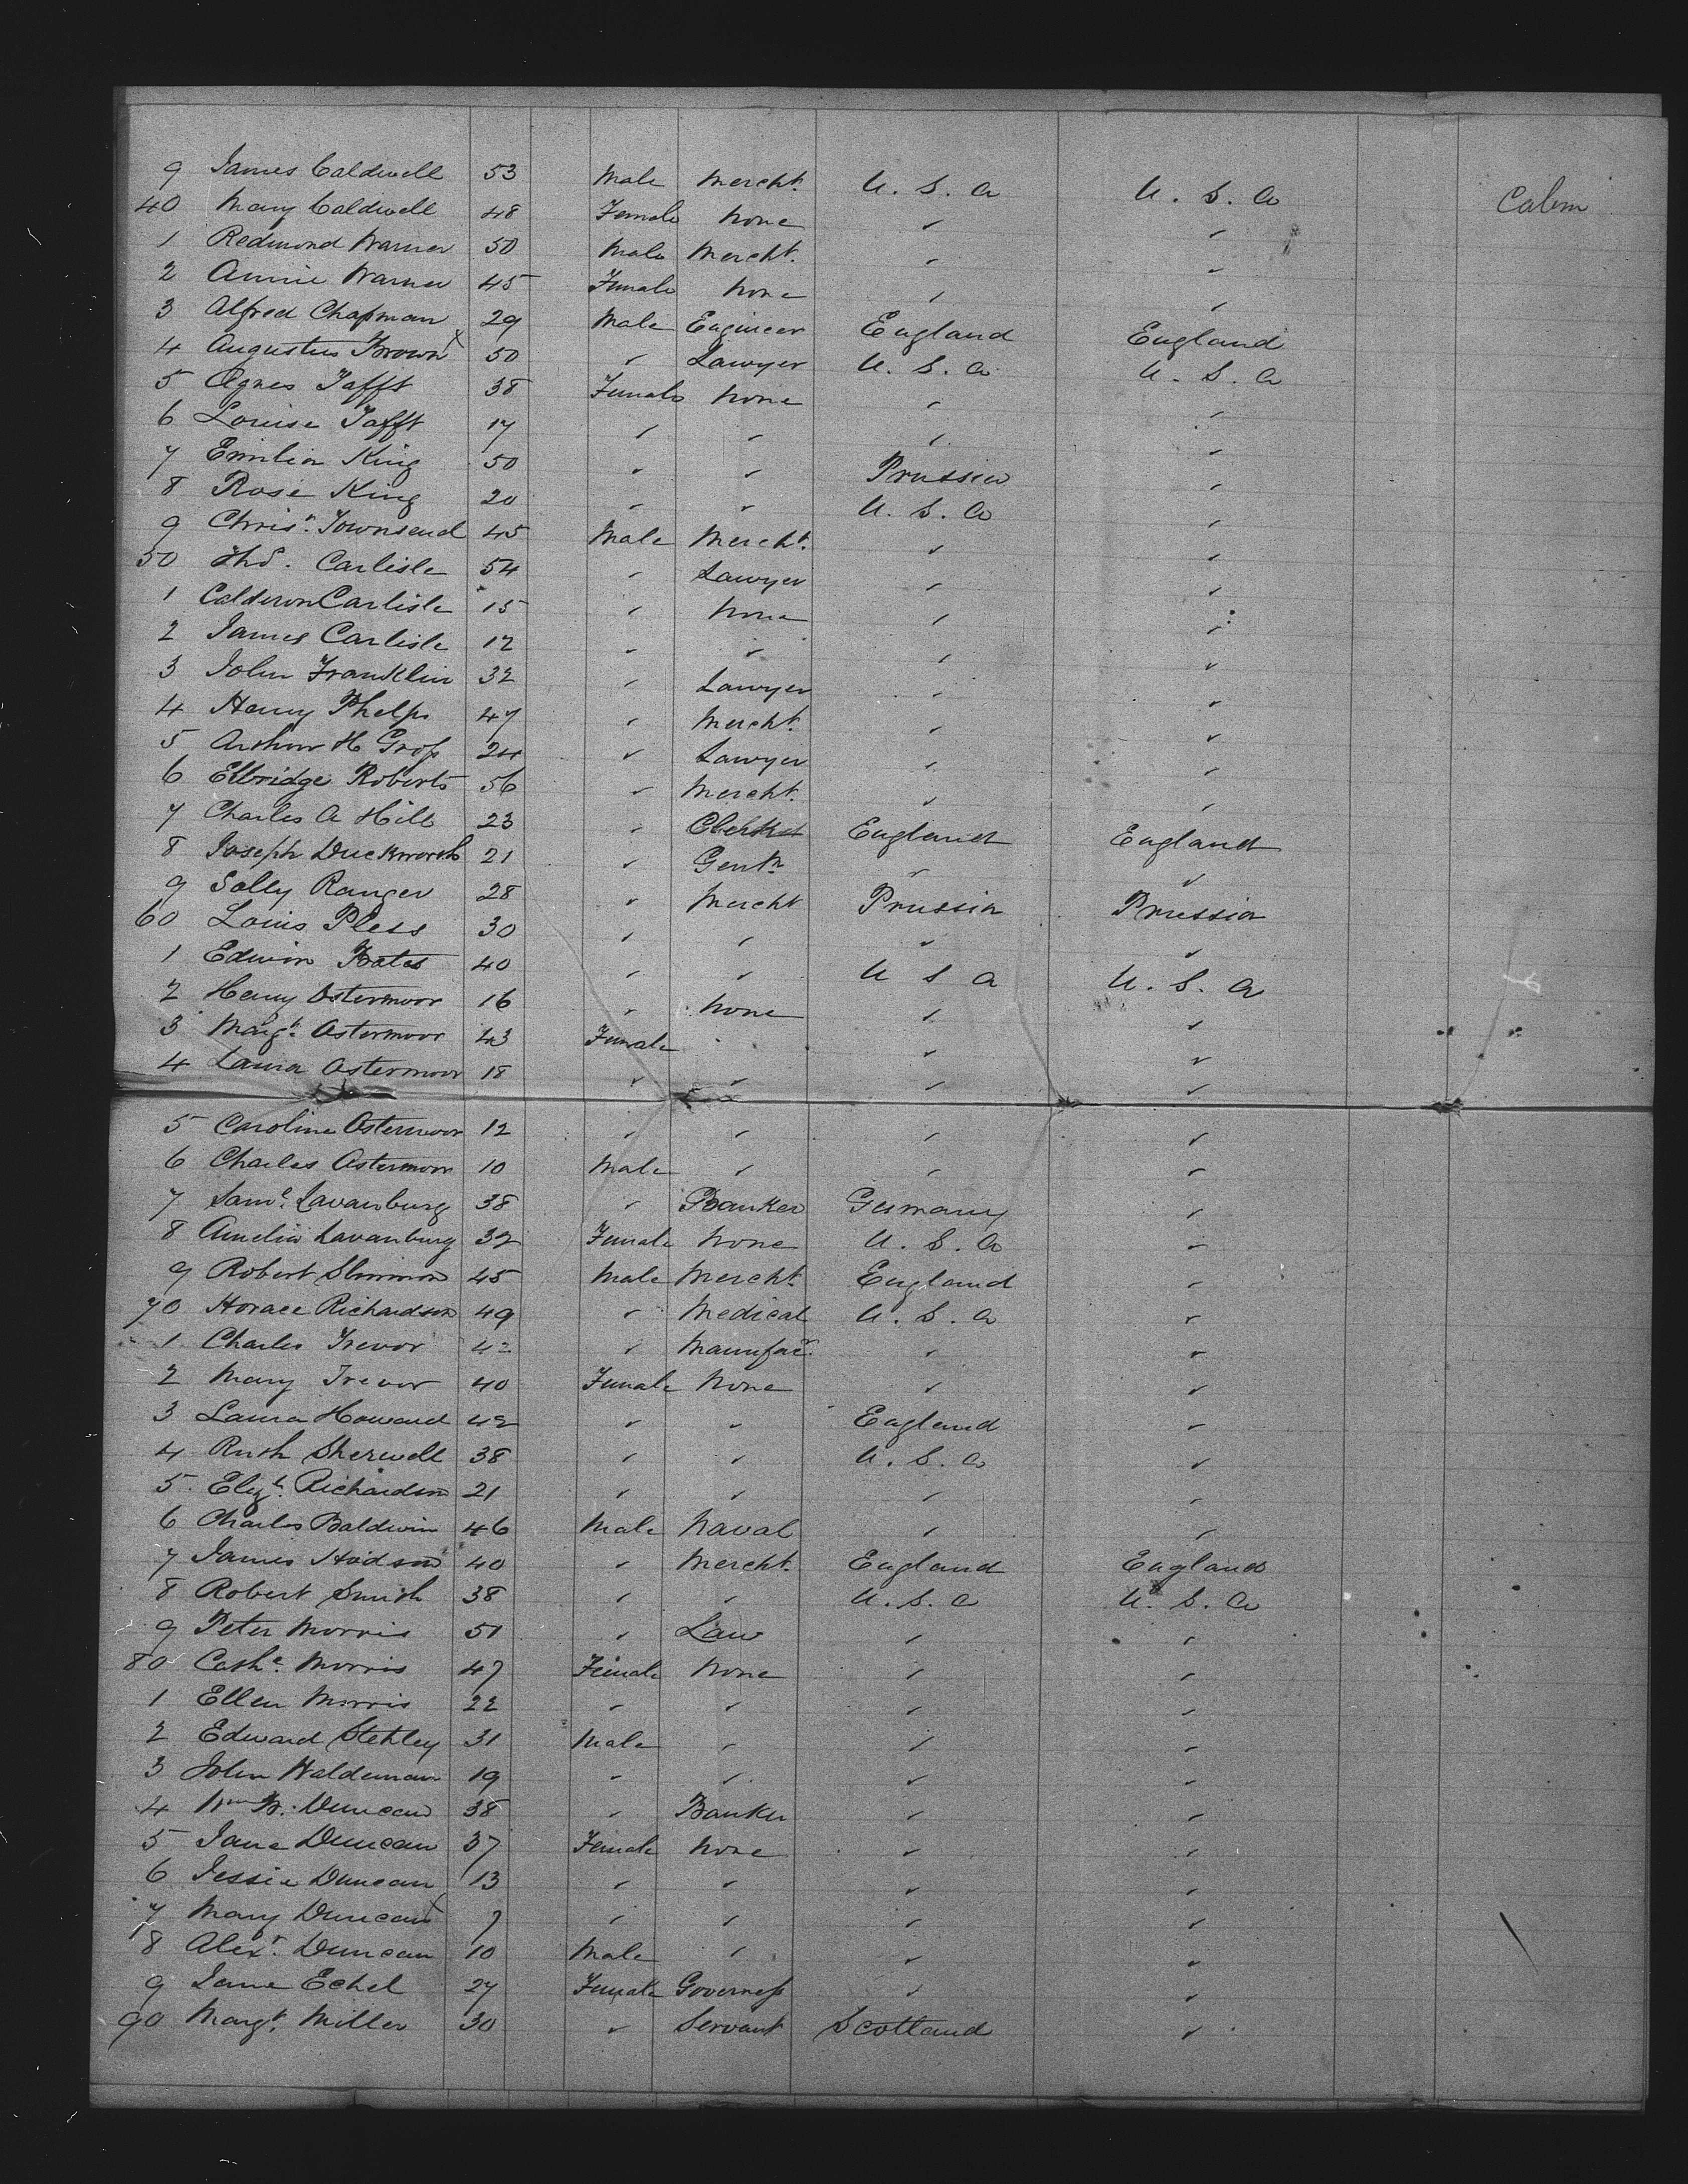 9 James Caldwell 53 Male Mercht. U. S. A U. S. A Cabin
40 Mary Caldwell 48 Female None " "
1 Redmond Warner 50 Male Mercht. " "
2 Annie Warner 45 Female None " "
3 Alfred Chapman 29 Male Engineer England England
4 Augustus Brown 50 " Lawyer U. S. A U. S. A
5 Agnes Tafft 38 Female None " "
6 Louise Tafft 17 " " " "
7 Emilia King 50 " " Prussia "
8 Rose King 20 " " U. S. A "
9 Chrisr. Townsend 45 Male Mercht. " "
50 Carlisle 54 " Lawyer " "
1 Calderon Carlisle 15 " None " "
2 James Carlisle 12 " " " "
3 John Franklin 32 " Lawyer " "
4 Henry Phelps 47 " Mercht. " "
5 Arthur H Gross 24 " Lawyer " "
6 Elbridge Roberts 56 " Mercht. " "
7 Charles A Hill 23 " England England
8 Joseph Duckworth 21 " Gentn " "
9 Solly Ranger 28 " Mercht Prussia Prussia
60 Louis Pless 30 " " " "
1 Edwin Bates 40 " " U S A U. S. A
2 Henry Ostermoor 16 " None " "
3 Margt. Ostermoor 43 Female " " "
4 Laura Ostermoor 18 " " " "
5 Caroline Ostermoor 12 " " " "
6 Charles Ostermoor 10 Male " " "
7 Saml. Lavanburg 38 " Banker Germany "
8 Amelia Lavanburg 32 Female None U. S. A "
9 Robert Slimmon 45 Male Mercht. England "
70 Horace Richardson 49 " Medical U. S. A "
1 Charles Trevor 42 " Manufacr. " "
2 Mary Trevor 40 Female None " "
3 Laura Howard 42 " " England "
4 Ruth Sherwell 38 " " U. S. A "
5 Elizth. Richardson 21 " " " "
6 Charles Baldwin 46 Male Naval " "
7 James Hodson 40 " Mercht. England England
8 Robert Smith 38 " " U. S. A U. S. A
9 Peter Morris 51 " Law " "
80 Cathe. Morris 47 Female None " "
1 Ellen Morris 22 " " " "
2 Edward Stehley 31 Male " " "
3 John Haldeman 19 " " " "
4 Wm B. Duncan 38 " Banker " "
5 Jane Duncan 37 Female None " "
6 Jessie Duncan 13 " " " "
7 Mary Duncan 7 " " " "
8 Alexr. Duncan 10 Male " " "
9 Jane Echel 27 Female Governess " "
90 Margt. Miller 30 " Servant Scotland "